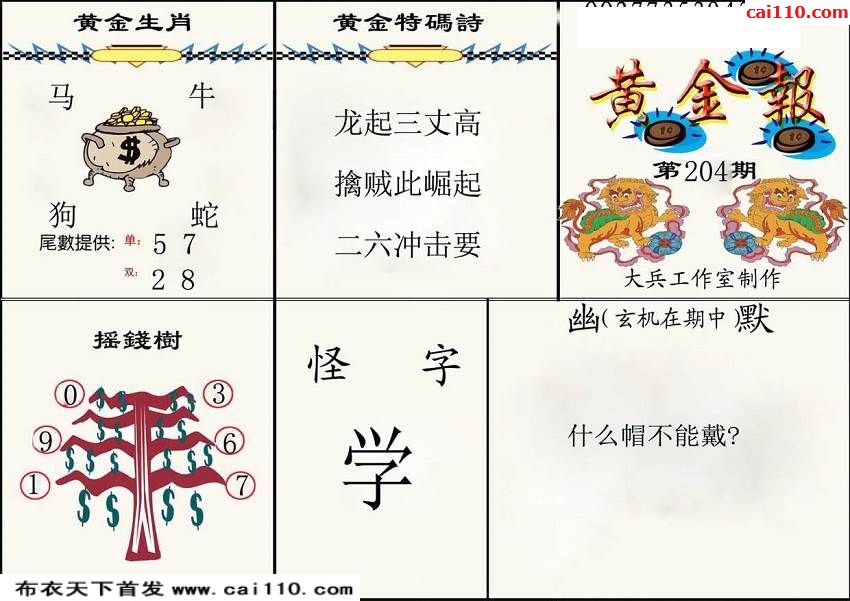 黄金生肖
马 牛
$
狗 蛇
尾數提供: 单: 5 7
双: 2 8
黄金特碼詩
龙起三丈高
擒贼此崛起
二六冲击要
cai110.com
黄金報
第204期
大兵工作室制作
摇錢樹
0 3
9 6
1 7
怪 字
学
幽(玄机在期中)默
什么帽不能戴?
布衣天下首发 www.cai110.com